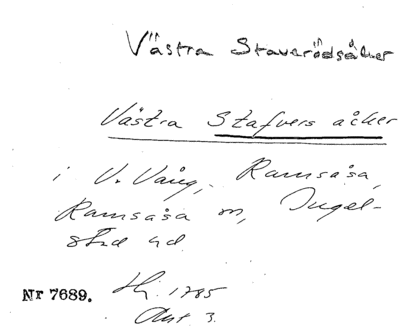 Västra Staverödsåker
Västra Stafvers åcker
i V. Vång, Ramsåsa,
Ramsåsa sn, Ingel-
stad hd.
Nr 7689. Hj. 1785
Akt 3.